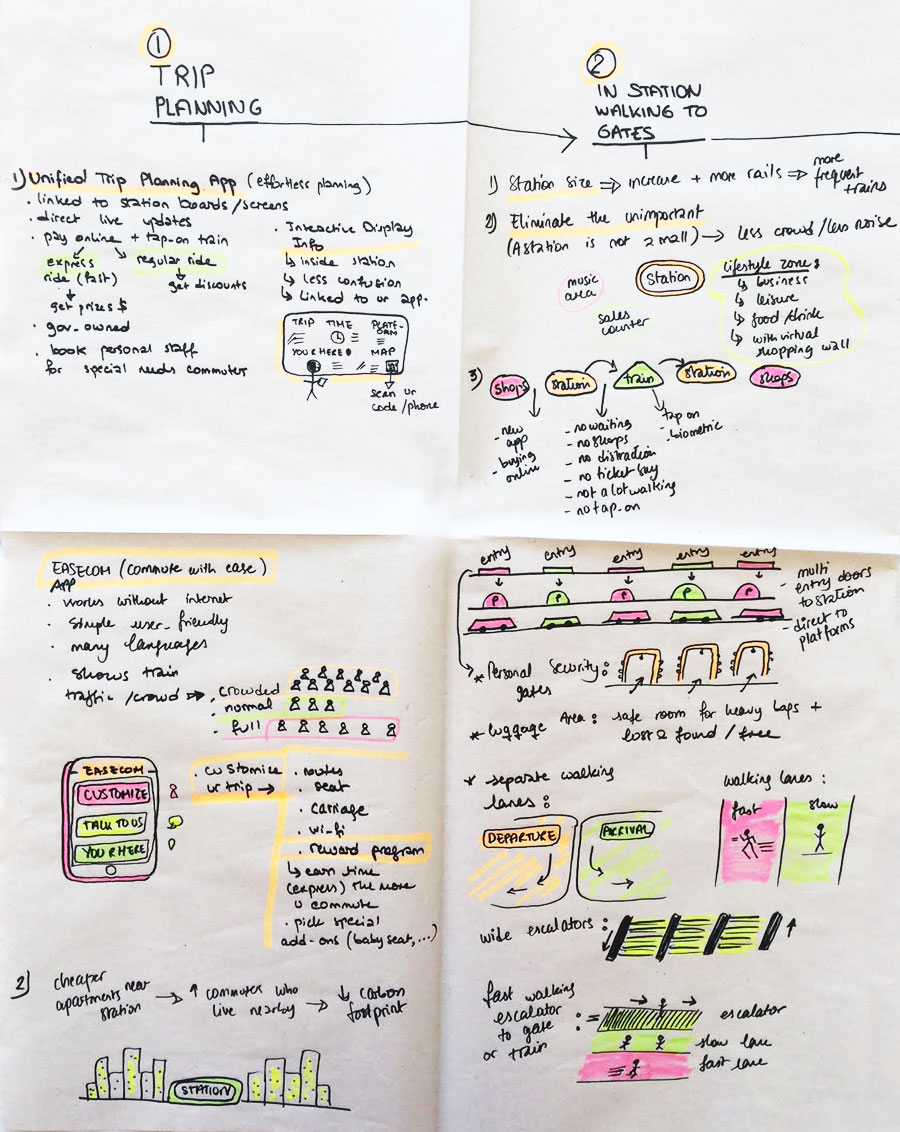 1
TRIP
PLANNING
1) Unified Trip Planning App (effortless planning)
· linked to station boards/screens
· direct live updates
· pay online + tap-on train
express
ride (fast)
regular ride
get prizes $
get discounts
· gov-owned
· book personal staff
for special needs commuter
· Interactive Display
Info
↳ Inside station
↳ less confusion
↳ linked to ur app.
TRIP TIME PLATF-
ORM
YOU R HERE MAP
scan ur
code/phone
2
IN STATION
WALKING TO
GATES
1) Station size ⇒ increase + more rails ⇒ more
frequent
trains
2) Eliminate the unimportant
(A station is not a mall) → less crowd/less noise
music
area
Station
sales
counter
lifestyle zone:
↳ business
↳ leisure
↳ food/drink
↳ with virtual
shopping wall
3)
shops station train station shops
- new
app
- buying
online
- no waiting
- no shops
- no distraction
- no ticket buy
- not a lot walking
- no tap-on
- tap on
- biometric
EASECOM (commute with ease)
APP
· works without internet
· simple user-friendly
· many languages
· shows train
traffic/crowd → · crowded
normal
· full
EASECOM
CUSTOMIZE
TALK TO US
YOU R HERE
· customize
ur trip →
· routes
· seat
· carriage
· wi-fi
· reward program
↳ earn time
(express) the more
u commute
· pick special
add-ons (baby seat,...)
2) cheaper
apartments near
station → ↑ commuters who
live nearby → ↓ carbon
footprint
STATION
entry entry entry entry entry
P P P P P
- multi
entry doors
to station
- direct to
platforms
* Personal Security:
gates
* Luggage Area: safe room for heavy bags +
lost & found / free
* separate walking
lanes:
DEPARTURE
ARRIVAL
walking lanes:
fast slow
wide escalators:
fast walking
escalator
to gate
or train
: =
escalator
slow lane
fast lane